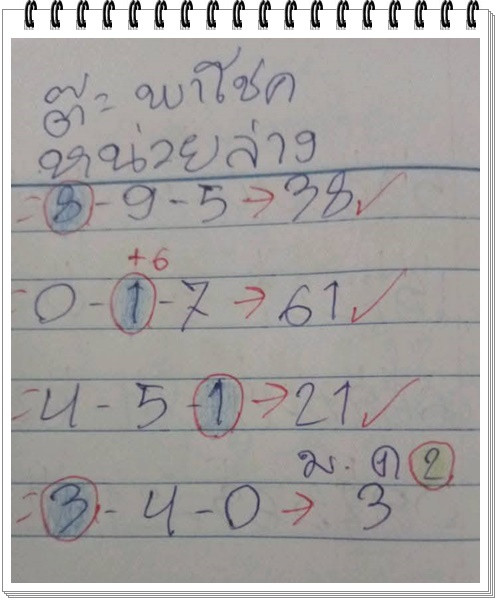 ต๊ะ พาโชค
หน่วยล่าง
= 8 - 9 - 5 → 38 ✓
+6
= 0 - 1 - 7 → 61 ✓
= 4 - 5 - 1 → 21 ✓
2
= 3 - 4 - 0 → 3